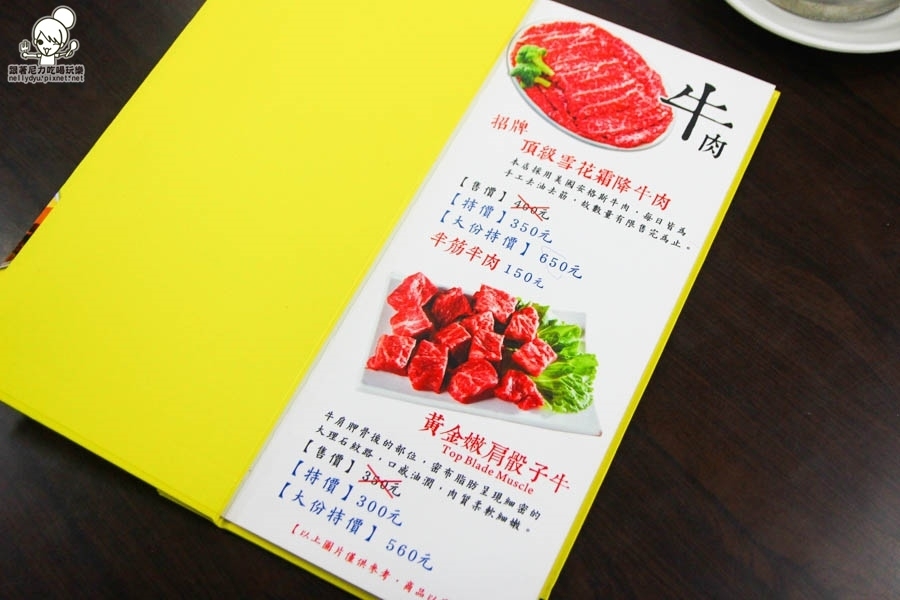 跟著尼力吃喝玩樂
nellydyu.pixnet.net
牛肉
招牌
頂級雪花霜降牛肉
本店採用美國安格斯牛肉，每日皆為
手工去油去筋，故數量有限售完為止。
【售價】400元
【特價】350元
【大份特價】650元
牛筋牛肉 150元
黃金嫩肩骰子牛
Top Blade Muscle
牛肩胛骨後的部位，密布脂肪呈現細密的
大理石紋路，口感油潤，肉質柔軟細嫩。
【售價】350元
【特價】300元
【大份特價】560元
【以上圖片僅供參考，商品以